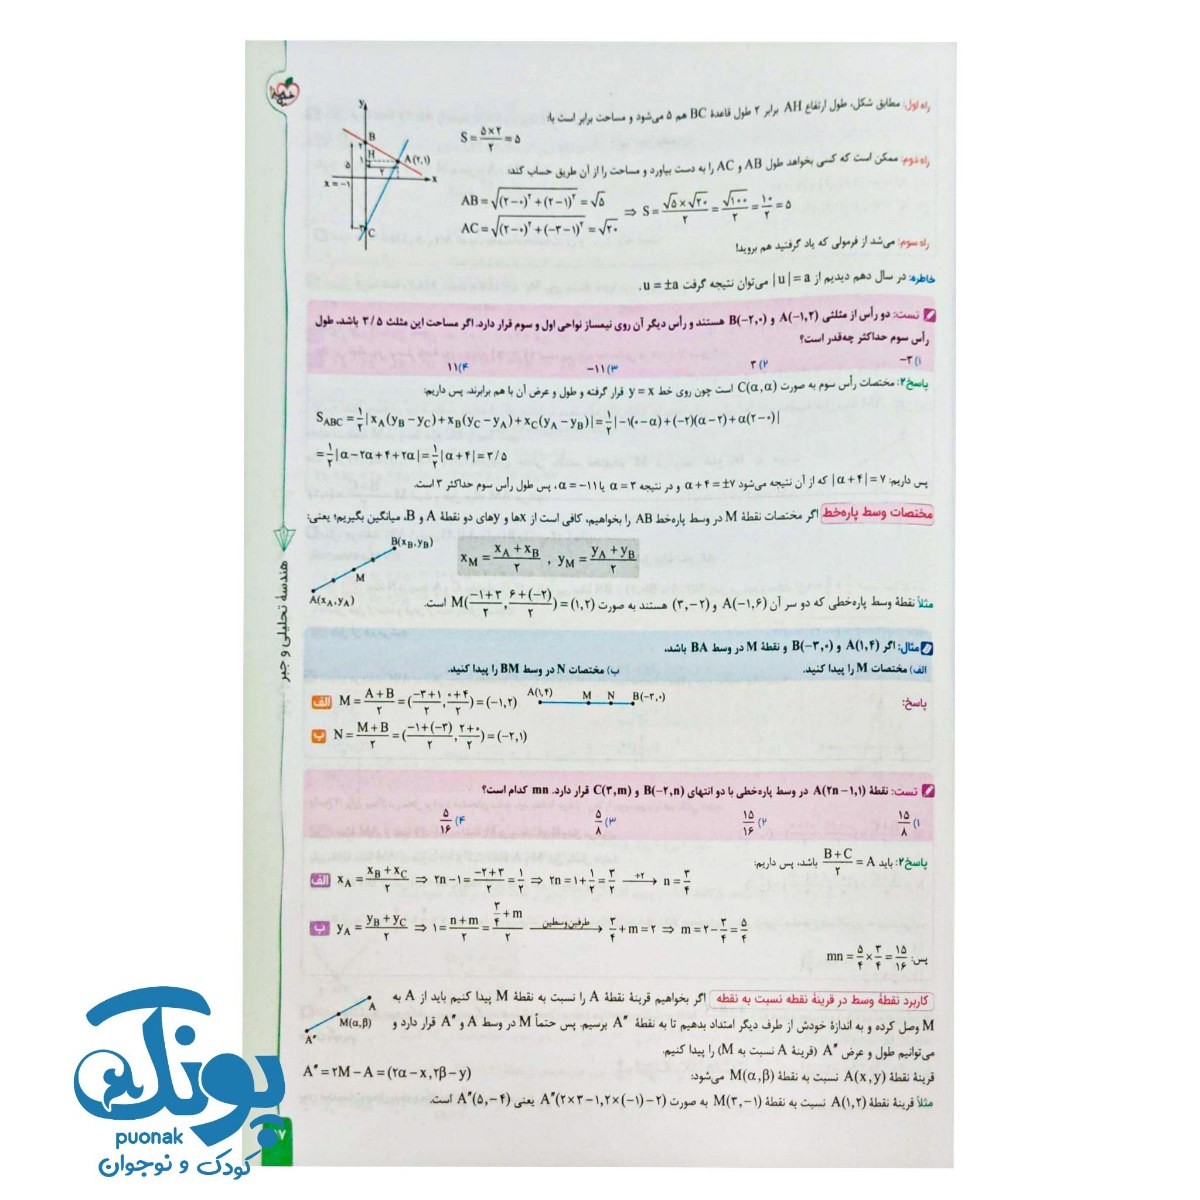 راه اول: مطابق شکل، طول ارتفاع AH برابر ۲ طول قاعدهٔ BC هم ۵ می‌شود و مساحت برابر است با:
S = ۵×۲/۲ = ۵
راه دوم: ممکن است که کسی بخواهد طول AB و AC را به دست بیاورد و مساحت را از آن طریق حساب کند:
AB = √((۲−۰)^۲ + (۲−۱)^۲) = √۵
AC = √((۲−۰)^۲ + (−۳−۱)^۲) = √۲۰
⇒ S = √۵×√۲۰/۲ = √۱۰۰/۲ = ۱۰/۲ = ۵
راه سوم: می‌شد از فرمولی که یاد گرفتید هم بروید!
y
B
۲
H
۱
A(۲,۱)
۲
x
۵
x = −۱
−۳
C
خاطره: در سال دهم دیدیم از |u| = a می‌توان نتیجه گرفت u = ±a.
تست: دو رأس از مثلثی A(−۱,۲) و B(−۲,۰) هستند و رأس دیگر آن روی نیمساز نواحی اول و سوم قرار دارد. اگر مساحت این مثلث ۳/۵ باشد، طول
رأس سوم حداکثر چه‌قدر است؟
۱) −۳ ۲) ۳ ۳) −۱۱ ۴) ۱۱
پاسخ۲: مختصات رأس سوم به صورت C(α,α) است چون روی خط y = x قرار گرفته و طول و عرض آن با هم برابرند. پس داریم:
S_ABC = ۱/۲ |x_A(y_B − y_C) + x_B(y_C − y_A) + x_C(y_A − y_B)| = ۱/۲ |−۱(۰−α) + (−۲)(α−۲) + α(۲−۰)|
= ۱/۲ |α − ۲α + ۴ + ۲α| = ۱/۲ |α + ۴| = ۳/۵
پس داریم: |α + ۴| = ۷ که از آن نتیجه می‌شود α + ۴ = ±۷ و در نتیجه α = ۳ یا α = −۱۱، پس طول رأس سوم حداکثر ۳ است.
مختصات وسط پاره‌خط اگر مختصات نقطهٔ M در وسط پاره‌خط AB را بخواهیم، کافی است از xها و yهای دو نقطهٔ A و B، میانگین بگیریم؛ یعنی:
x_M = (x_A + x_B)/۲ , y_M = (y_A + y_B)/۲
B(x_B, y_B)
M
A(x_A, y_A)
مثلاً نقطهٔ وسط پاره‌خطی که دو سر آن A(−۱,۶) و (۳,−۲) هستند به صورت M((−۱+۳)/۲, (۶+(−۲))/۲) = (۱,۲) است.
مثال: اگر A(۱,۴) و B(−۳,۰) و نقطهٔ M در وسط BA باشد.
الف) مختصات M را پیدا کنید. ب) مختصات N در وسط BM را پیدا کنید.
پاسخ:
الف M = (A+B)/۲ = ((−۳+۱)/۲, (۰+۴)/۲) = (−۱,۲)
A(۱,۴) M N B(−۳,۰)
ب N = (M+B)/۲ = ((−۱+(−۳))/۲, (۲+۰)/۲) = (−۲,۱)
تست: نقطهٔ A(۲n−۱,۱) در وسط پاره‌خطی با دو انتهای B(−۲,n) و C(۳,m) قرار دارد. mn کدام است؟
۱) ۱۵/۸ ۲) ۱۵/۱۶ ۳) ۵/۸ ۴) ۵/۱۶
پاسخ۲: باید A = (B+C)/۲ باشد، پس داریم:
الف x_A = (x_B + x_C)/۲ ⇒ ۲n−۱ = (−۲+۳)/۲ = ۱/۲ ⇒ ۲n = ۱ + ۱/۲ = ۳/۲ —÷۲→ n = ۳/۴
ب y_A = (y_B + y_C)/۲ ⇒ ۱ = (n+m)/۲ = (۳/۴ + m)/۲ —طرفین وسطین→ ۳/۴ + m = ۲ ⇒ m = ۲ − ۳/۴ = ۵/۴
پس: mn = ۵/۴ × ۳/۴ = ۱۵/۱۶
کاربرد نقطهٔ وسط در قرینهٔ نقطه نسبت به نقطه اگر بخواهیم قرینهٔ نقطهٔ A را نسبت به نقطهٔ M پیدا کنیم باید از A به
M وصل کرده و به اندازهٔ خودش از طرف دیگر امتداد بدهیم تا به نقطهٔ A″ برسیم. پس حتماً M در وسط A و A″ قرار دارد و
می‌توانیم طول و عرض A″ (قرینهٔ A نسبت به M) را پیدا کنیم.
A
M(α,β)
A″
قرینهٔ نقطهٔ A(x,y) نسبت به نقطهٔ M(α,β) می‌شود: A″ = ۲M − A = (۲α − x, ۲β − y)
مثلاً قرینهٔ نقطهٔ A(۱,۲) نسبت به نقطهٔ M(۳,−۱) به صورت A″(۲×۳−۱, ۲×(−۱)−۲) یعنی A″(۵,−۴) است.
هندسهٔ تحلیلی و جبر
پونک
puonak
کودک و نوجوان